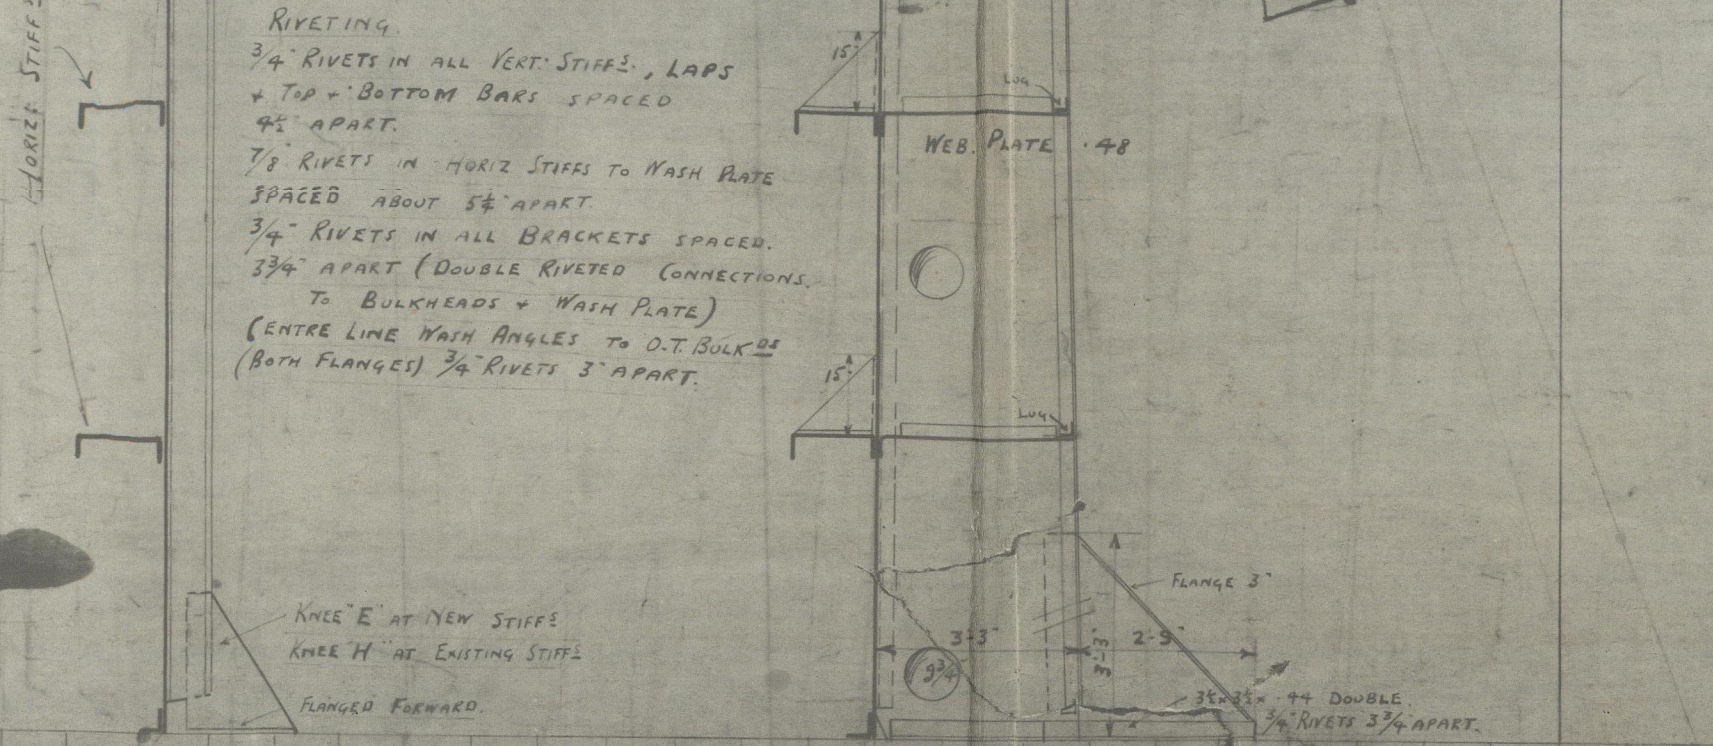 HORIZ STIFFS
RIVETING.
3/4" RIVETS IN ALL VERT. STIFFS., LAPS
+ TOP + BOTTOM BARS SPACED
4½" APART.
7/8" RIVETS IN HORIZ STIFFS TO WASH PLATE
SPACED ABOUT 5¼" APART.
3/4" RIVETS IN ALL BRACKETS SPACED.
3¾" APART (DOUBLE RIVETED CONNECTIONS.
TO BULKHEADS + WASH PLATE)
CENTRE LINE WASH ANGLES TO O.T. BULKDS
(BOTH FLANGES) 3/4" RIVETS 3" APART.
15"
LUG
WEB. PLATE .48
15"
LUG
FLANGE 3"
KNEE "E" AT NEW STIFFS
KNEE "H" AT EXISTING STIFFS
FLANGED FORWARD.
3'-3"
9¾
3'-3"
2'-9"
3½ x 3½ x .44 DOUBLE.
3/4" RIVETS 3¾" APART.